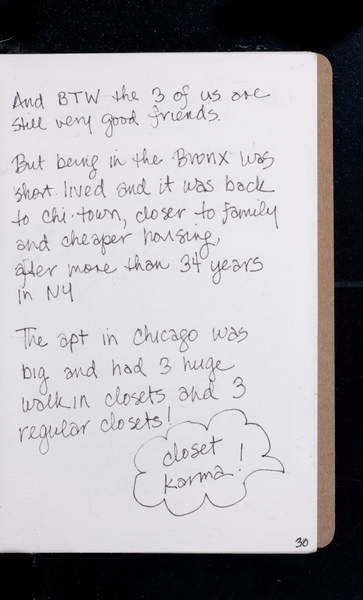 And BTW the 3 of us are
still very good friends.
But being in the Bronx was
short lived and it was back
to chi-town, closer to family
and cheaper housing,
after more than 34 years
in NY
The apt in Chicago was
big and had 3 huge
walk in closets and 3
regular closets!
closet
karma!
30